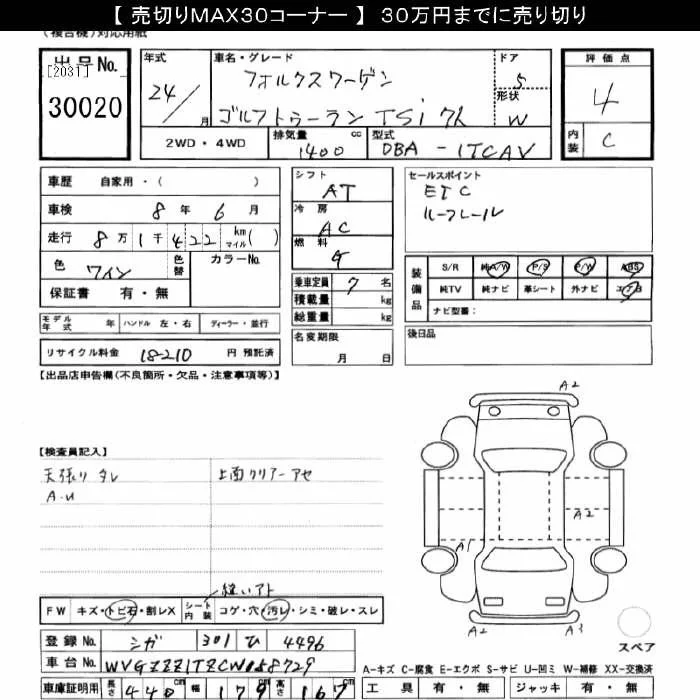 【 売切りMAX30コーナー 】 30万円までに売り切り
(複合機)対応用紙
出品No. [2031] 30020
年式 24/ 月
車名・グレード フォルクスワーゲン
ゴルフトゥーラン TSi
ドア 5
形状 W
評価点 4
内装 C
2WD・4WD 排気量 1400 cc 型式 DBA-1TCAV
車歴 自家用・( )
車検 8年 6月
走行 8万 1千 422 km マイル ( )
色 ワイン 色替 カラーNo.
保証書 有・無
シフト AT
冷房 AC
燃料 G
乗車定員 7名
積載量 kg
総重量 kg
セールスポイント
ETC
ルーフレール
装備品 S/R 純A/W P/S P/W ABS
純TV 純ナビ 革シート 外ナビ エアB
ナビ型番:
モデル年式 年 ハンドル 左・右 ディーラー・並行
名変期限 月 日
後日品
リサイクル料金 18210 円 預託済
【出品店申告欄(不良箇所・欠品・注意事項等)】
【検査員記入】
天張り タレ 上面クリアーアセ
A.U
A2
A2
A1
A2 A3
スペア
縫いアト
FW キズ・トビ石・割レX シート内装 コゲ・穴・汚レ・シミ・破レ・スレ
登録No. シガ 301 ひ 4496
車台No. WVGZZZ1TZCW058729
車庫証明用 長さ 440 cm 幅 179 cm 高さ 167 cm
A-キズ C-腐食 E-エクボ S-サビ U-凹ミ W-補修 XX-交換済
工具 有・無 ジャッキ 有・無